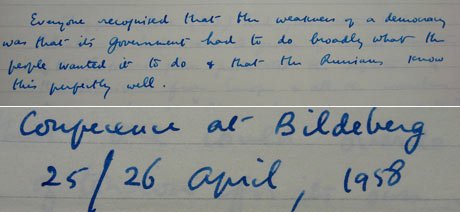 Everyone recognised that the weakness of a democracy
was that its Government had to do broadly what the
people wanted it to do & that the Russians know
this perfectly well.
Conference at Bildeberg
25/26 April, 1958